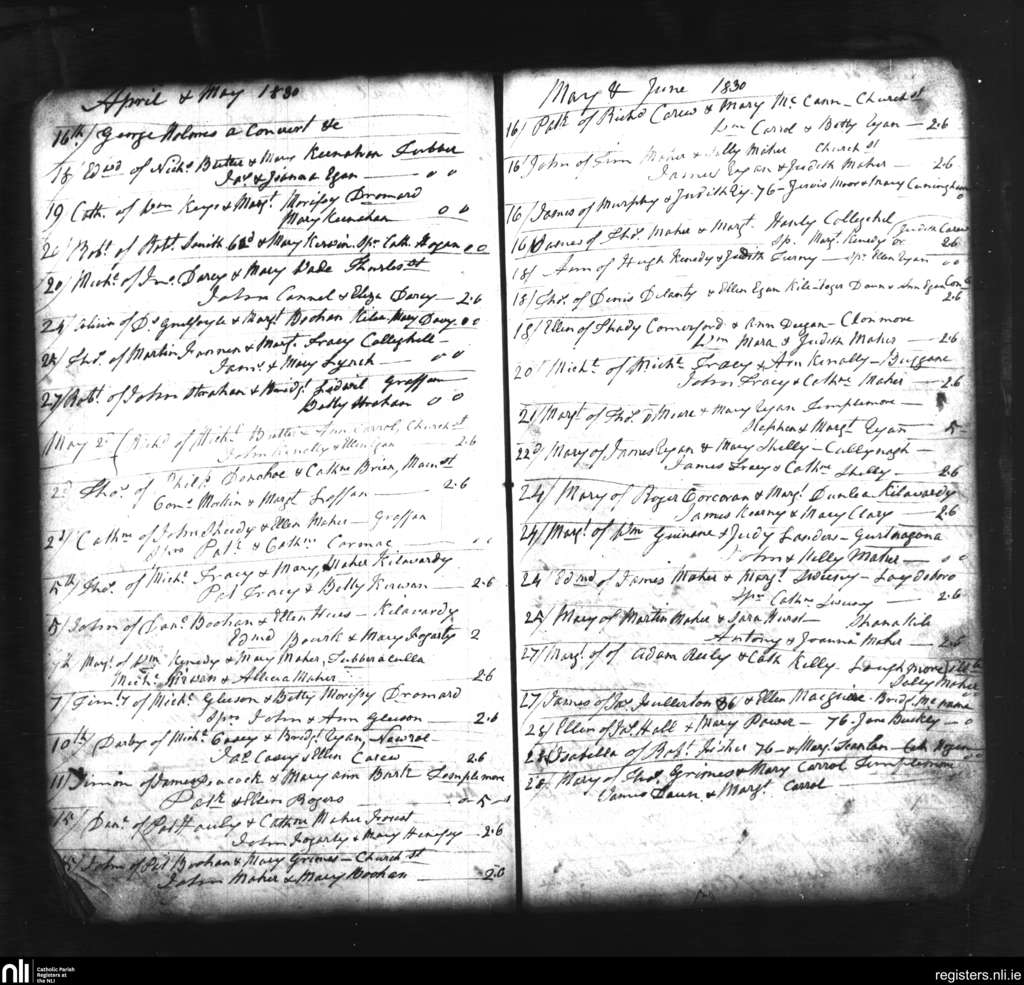 April & May 1830
16th/ George Holmes a Convert &c
18 Edwd of Nichs Butler & Mary Kernahan Tubber
Jas & Joanna Egan — 0 0
19 Cath. of Wm Kays & Margt. Morissy Dromard
Mary Kernahan 0 0
20/ Robt. of Robt. Smith 62d & Mary Kerwin. Spr Cath. Hogan 0 0
20/ Michl. of Jno. Darcy & Mary Wade Thurles st
John Connel & Eliza Darcy — 2.6
24/ of Ds Guilfoyle & Margt Boohan Kilea Mary Davy. 0 0
24/ Thos. of Martin & Margt. Tracy Colleghill —
Jams. & Mary Lynch — 0 0
27/ Robt. of John Strahan & Bridgt. Sidwil Graffan
Betty Strahan 0 0
May 2d (Richd of Michl. Butler Ann Carrol, Church st
John Kenelly & Ellen Egan 2.6
2d Thos. of Philip Donahoe & Cathne Brien, Main st
Corns. & Margt — 2.6
2d/ Cathne of John Sheedy & Ellen Maher — Graffan
Spros Patk & Cathne Cormac — . .
5th/ Thos. of Michl. Tracy & Mary Maher Kilavardy
Pat Tracy & Betty Kirwan — 2.6
5/ John of Danl. Boohan & Ellen Hues — Kilavardy
Edmd Bourk & Mary Fogarty 2
7th Margt. of Wm Kenedy & Mary Maher, Tubberaculla
Michl. Kirwan & Allicia Maher 2.6
7/ Timy. of Michl. Gleeson & Betty Morissy Dromard
Sprs John & Ann Gleeson — 2.6
10th/ Darby of Michl. Casey & Bridgt. Ryan,
Jas Casey & Ellen Carew 2.6
11/ Simon of James Peacock & Mary ann Bark Templemore
Patk & Ellen Rogers — 5 —
15/ Danl. of Pat Hanly & Cathne Maher Forest
John Fogarty & Mary — 2.6
15/ John of Pat Boohan & Mary Grimes — Church st
John Maher & Mary Boohan — 2.6
May & June 1830
16/ Patk. of Richd Carew & Mary McCann — Church st
Wm Carrol & Betty Ryan — 2.6
16/ John of Tim Maher & Nelly Maher Church st
James Ryan & Judith Maher — 2.6
16/ James of Murphy & Judith Ry. 76 — Jarvis Moor & Mary Cunningham 0
16/ James of Thos. Maher & Margt. Hanly Colleghil
Sp. Margt. Kenedy or (Judith Carew 2.6
18/ Ann of Hugh Kenedy & Judith Turney — Spr Ellen Ryan 0 0
18/ Thos. of Denis Delanty & Ellen Egan & Ann Egan
2.6
18/ Ellen of Thady Comerford & Ann Deegan — Clonmore
Wm Mara & Judith Maher — 2.6
20/ Michl. of Michl. Tracy & Ann Kenally — Buggane
John Tracy & Cathne Maher — 2.6
21/ Margt. of Thos. & Mary Ryan Templemore —
Stephen & Margt. Ryan — 5
22d/ Mary of James Ryan & Mary Shelly —
James Tracy & Cathne Shelly — 2.6
24/ Mary of Roger Corcoran & Margt. Dunlea Kilavardy
James Kearny & Mary Clary — 2.6
24/ Margt. of Wm Guinane & Judy Landers —
John & Nelly Maher — 0 0
24 Edmd of James Maher & Margt. Sweeny —
Sprs Cathne Sweeny — 2.6
25/ Mary of Martin Maher & Sara Hurst — Shanakill
Antony & Joanna Maher — 2.6
27/ Margt. of of Adam Reily & Cath Kelly. Loughmore
Sally Maher
27/ James of Jas. Fullerton 86 & Ellen Macguire. Bridgt.
28/ Ellen of Js. Hall & Mary Power — 76. Jane Buckley — 0
28/ Isabella of Robt. Fisher 76 — & Margt. Scanlan — Cath Hogan — 0 0
28/ Mary of Thos. Grimes & Mary Carrol Templemore
James Daun & Margt Carrol —
nli
Catholic Parish
Registers at
the NLI
registers.nli.ie